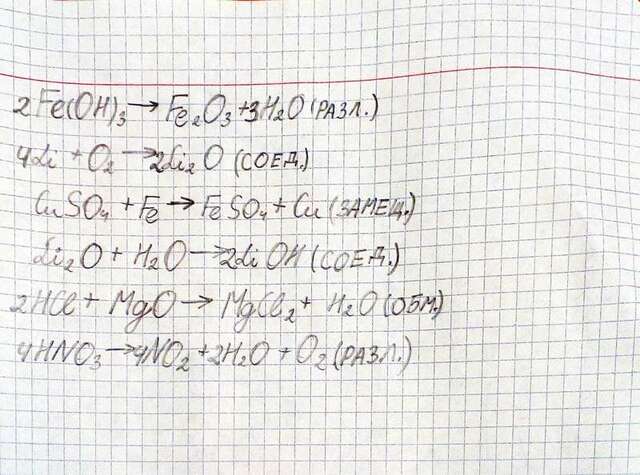 2Fe(OH)₃ → Fe₂O₃ + 3H₂O (РАЗЛ.)
4Li + O₂ → 2Li₂O (СОЕД.)
CuSO₄ + Fe → FeSO₄ + Cu (ЗАМЕЩ.)
Li₂O + H₂O → 2LiOH (СОЕД.)
2HCl + MgO → MgCl₂ + H₂O (ОБМ.)
4HNO₃ → 4NO₂ + 2H₂O + O₂ (РАЗЛ.)